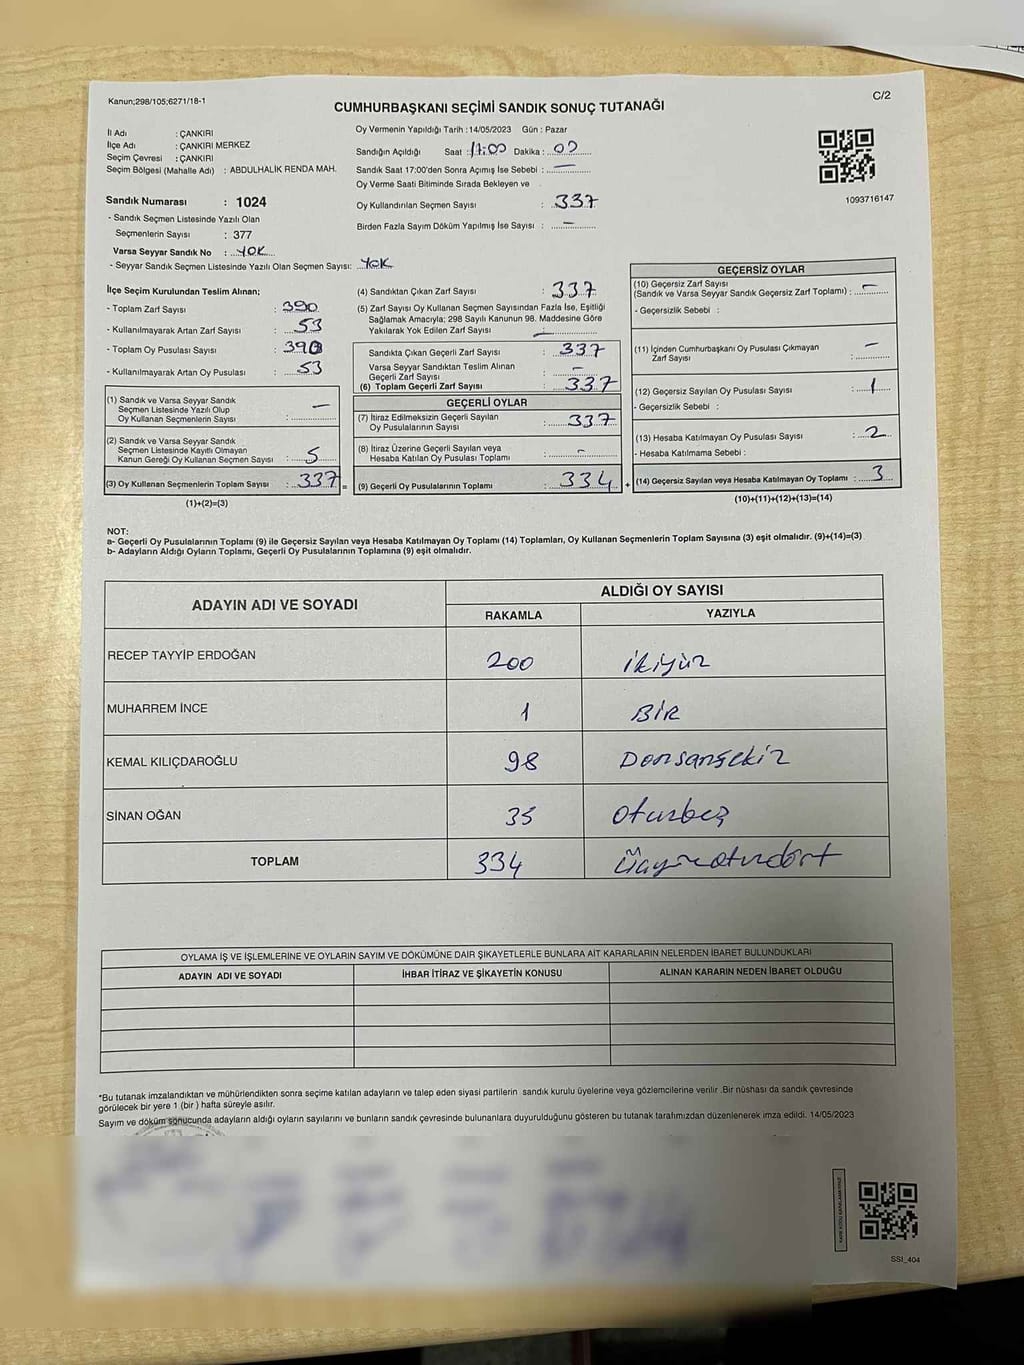 Kanun;298/105;6271/18-1
C/2
CUMHURBAŞKANI SEÇİMİ SANDIK SONUÇ TUTANAĞI
İl Adı : ÇANKIRI
İlçe Adı : ÇANKIRI MERKEZ
Seçim Çevresi : ÇANKIRI
Seçim Bölgesi (Mahalle Adı) : ABDULHALİK RENDA MAH.
Sandık Numarası : 1024
- Sandık Seçmen Listesinde Yazılı Olan
Seçmenlerin Sayısı : 377
Varsa Seyyar Sandık No : YOK
- Seyyar Sandık Seçmen Listesinde Yazılı Olan Seçmen Sayısı: YOK
Oy Vermenin Yapıldığı Tarih : 14/05/2023 Gün : Pazar
Sandığın Açıldığı Saat : 17:00 Dakika : 00
Sandık Saat 17:00'den Sonra Açımış İse Sebebi : —
Oy Verme Saati Bitiminde Sırada Bekleyen ve
Oy Kullandırılan Seçmen Sayısı : 337
Birden Fazla Sayım Döküm Yapılmış İse Sayısı : —
1093716147
İlçe Seçim Kurulundan Teslim Alınan;
- Toplam Zarf Sayısı : 390
- Kullanılmayarak Artan Zarf Sayısı : 53
- Toplam Oy Pusulası Sayısı : 390
- Kullanılmayarak Artan Oy Pusulası : 53
(1) Sandık ve Varsa Seyyar Sandık
Seçmen Listesinde Yazılı Olup
Oy Kullanan Seçmenlerin Sayısı : —
(2) Sandık ve Varsa Seyyar Sandık
Seçmen Listesinde Kayıtlı Olmayan
Kanun Gereği Oy Kullanan Seçmen Sayısı : 5
(3) Oy Kullanan Seçmenlerin Toplam Sayısı : 337 =
(1)+(2)=(3)
(4) Sandıktan Çıkan Zarf Sayısı : 337
(5) Zarf Sayısı Oy Kullanan Seçmen Sayısından Fazla İse, Eşitliği
Sağlamak Amacıyla; 298 Sayılı Kanunun 98. Maddesine Göre
Yakılarak Yok Edilen Zarf Sayısı : —
Sandıkta Çıkan Geçerli Zarf Sayısı : 337
Varsa Seyyar Sandıktan Teslim Alınan
Geçerli Zarf Sayısı : —
(6) Toplam Geçerli Zarf Sayısı : 337
GEÇERLİ OYLAR
(7) İtiraz Edilmeksizin Geçerli Sayılan
Oy Pusulalarının Sayısı : 337
(8) İtiraz Üzerine Geçerli Sayılan veya
Hesaba Katılan Oy Pusulası Toplamı : -
(9) Geçerli Oy Pusulalarının Toplamı : 334 +
GEÇERSİZ OYLAR
(10) Geçersiz Zarf Sayısı
(Sandık ve Varsa Seyyar Sandık Geçersiz Zarf Toplamı) : —
- Geçersizlik Sebebi :
(11) İçinden Cumhurbaşkanı Oy Pusulası Çıkmayan
Zarf Sayısı : —
(12) Geçersiz Sayılan Oy Pusulası Sayısı : 1
- Geçersizlik Sebebi :
(13) Hesaba Katılmayan Oy Pusulası Sayısı : 2
- Hesaba Katılmama Sebebi :
(14) Geçersiz Sayılan veya Hesaba Katılmayan Oy Toplamı : 3
(10)+(11)+(12)+(13)=(14)
NOT:
a- Geçerli Oy Pusulalarının Toplamı (9) ile Geçersiz Sayılan veya Hesaba Katılmayan Oy Toplamı (14) Toplamları, Oy Kullanan Seçmenlerin Toplam Sayısına (3) eşit olmalıdır. (9)+(14)=(3)
b- Adayların Aldığı Oyların Toplamı, Geçerli Oy Pusulalarının Toplamına (9) eşit olmalıdır.
ADAYIN ADI VE SOYADI ALDIĞI OY SAYISI
RAKAMLA YAZIYLA
RECEP TAYYİP ERDOĞAN 200 ikiyüz
MUHARREM İNCE 1 BİR
KEMAL KILIÇDAROĞLU 98 Doksansekiz
SİNAN OĞAN 35 otuzbeş
TOPLAM 334 Üçyüzotuzdört
OYLAMA İŞ VE İŞLEMLERİNE VE OYLARIN SAYIM VE DÖKÜMÜNE DAİR ŞİKAYETLERLE BUNLARA AİT KARARLARIN NELERDEN İBARET BULUNDUKLARI
ADAYIN ADI VE SOYADI İHBAR İTİRAZ VE ŞİKAYETİN KONUSU ALINAN KARARIN NEDEN İBARET OLDUĞU
*Bu tutanak imzalandıktan ve mühürlendikten sonra seçime katılan adayların ve talep eden siyasi partilerin sandık kurulu üyelerine veya gözlemcilerine verilir .Bir nüshası da sandık çevresinde
görülecek bir yere 1 (bir ) hafta süreyle asılır.
Sayım ve döküm sonucunda adayların aldığı oyların sayılarını ve bunların sandık çevresinde bulunanlara duyurulduğunu gösteren bu tutanak tarafımızdan düzenlenerek imza edildi. 14/05/2023
SSI_404